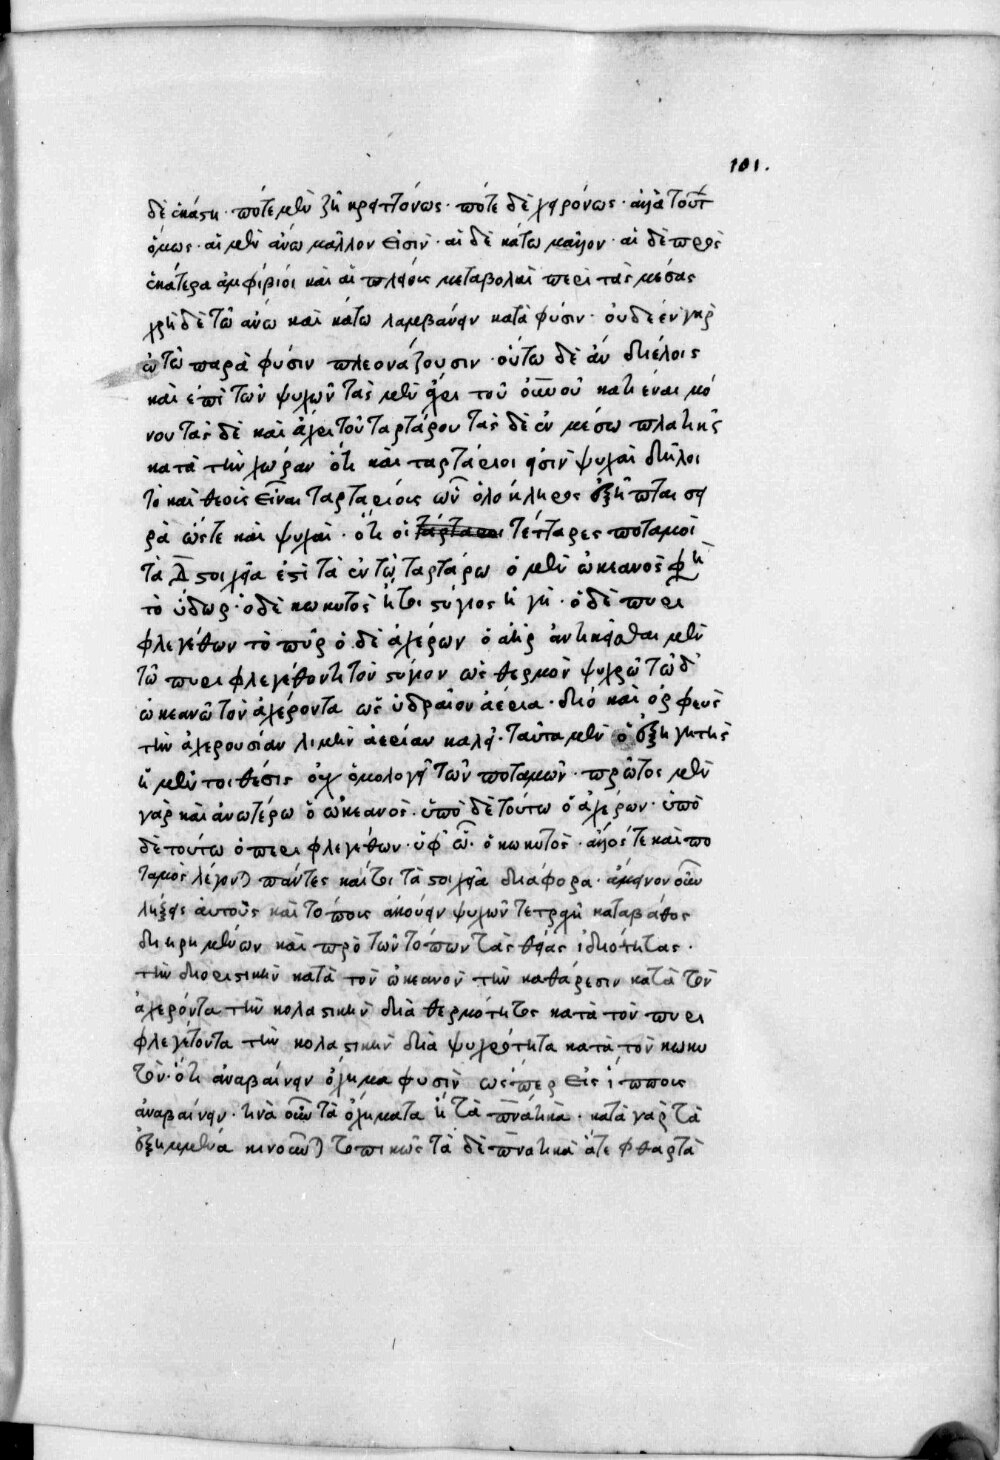 101.
δὲ ἑκάστη· ποτὲ μὲν ζῆ κρειττόνως· ποτὲ δὲ χειρόνως· ἀλλὰ τοῦτ
ὅμως· αἱ μὲν ἄνω μᾶλλον εἰσὶν· αἱ δὲ κάτω μᾶλλον· αἱ δὲ πρὸς
ἑκάτερα ἀμφίβιοι καὶ αἱ πλείοις μεταβολαὶ περὶ τὰς μέσας
χρὴ δὲ τῶ ἄνω καὶ κάτω λαμβάνειν κατὰ φύσιν· οὐδὲ ἐν γὰρ
ὦ τῶ παρὰ φύσιν πλεονάζουσιν· οὕτω δὲ ἂν διέλοις
καὶ ἐπὶ τῶν ψυχῶν τὰς μὲν ἄχρι τοῦ κατιέναι μό
νου τὰς δὲ καὶ ἄχρι τοῦ ταρτάρου τὰς δὲ ἐν μέσω πλατικῆς
κατὰ τὴν χώραν ὅτι καὶ ταρτάριοι εἰσὶν ψυχαὶ δηλοῖ
τὸ καὶ θεοὺς εἶναι ταρταρίους ὧν ὁλόκληρος ἐξῆπται σει
ρὰ ὥστε καὶ ψυχαὶ· ὅτι οἱ τέτταρες ποταμοὶ
τὰ δ στοιχεῖα ἐστὶ τὰ ἐν τῶ ταρτάρω ὁ μὲν ὠκεανὸς φη
τὸ ὕδωρ· ὁ δὲ κωκυτὸς ἤτοι στύγιος ἡ γῆ· ὁ δὲ πυρι
φλεγέθων τὸ πῦρ ὁ δὲ ἀχέρων ὁ ἀὴρ ἀντικεῖσθαι μὲν
τῶ πυριφλεγέθοντι τὸν στύγιον ὡς θερμὸν ψυχρῶ τῶ δ
ὠκεανῶ τὸν ἀχέροντα ὡς ὑδραῖον ἀέρια· διὸ καὶ ὀρφεὺς
τὴν ἀχερουσίαν λίμνην ἀερίαν καλεῖ· ταῦτα μὲν ὁ ἐξηγητὴς
ἡ μέν τοι θέσις οὐχ ὁμολογεῖ τῶν ποταμῶν· πρῶτος μὲν
γὰρ καὶ ἀνωτέρω ὁ ὠκεανὸς· ὑπὸ δὲ τούτω ὁ ἀχέρων· ὑπὸ
δὲ τούτω ὁ πυριφλεγέθων· ὑφ ὧ· ὁ κωκυτὸς· ἄλλος τε καὶ πο
ταμὸς λέγονται πάντες καί τοι τὰ στοιχεῖα διάφορα· ἄμεινον οὖν
λήξεις αὐτοὺς καὶ τόπους ἀκούειν ψυχῶν τετραχῆ κατὰ βάθος
διῃρημένων καὶ πρὸ τῶν τόπων τὰς θείας ἰδιότητας·
τὴν διοριστικὴν κατὰ τὸν ὠκεανὸν τὴν καθάρεσιν κατὰ τὸν
ἀχέροντα τὴν κολαστικὴν διὰ θερμότητος κατὰ τὸν πυρι
φλεγέτοντα τὴν κολαστικὴν διὰ ψυχρότητα κατὰ τὸν κωκυ
τὸν· ὅτι ἀναβαίνειν ὄχημα φυσὶν ὥσπερ εἰς ἵππους
ἀναβαίνειν· τινὰ οὖν τὰ ὀχήματα ἢ τὰ πνατικὰ· κατὰ γὰρ τὰ
ἐξημμένα κινοῦνται τοπικῶς τὰ δὲ πνατικὰ ἅτε φθαρτὰ